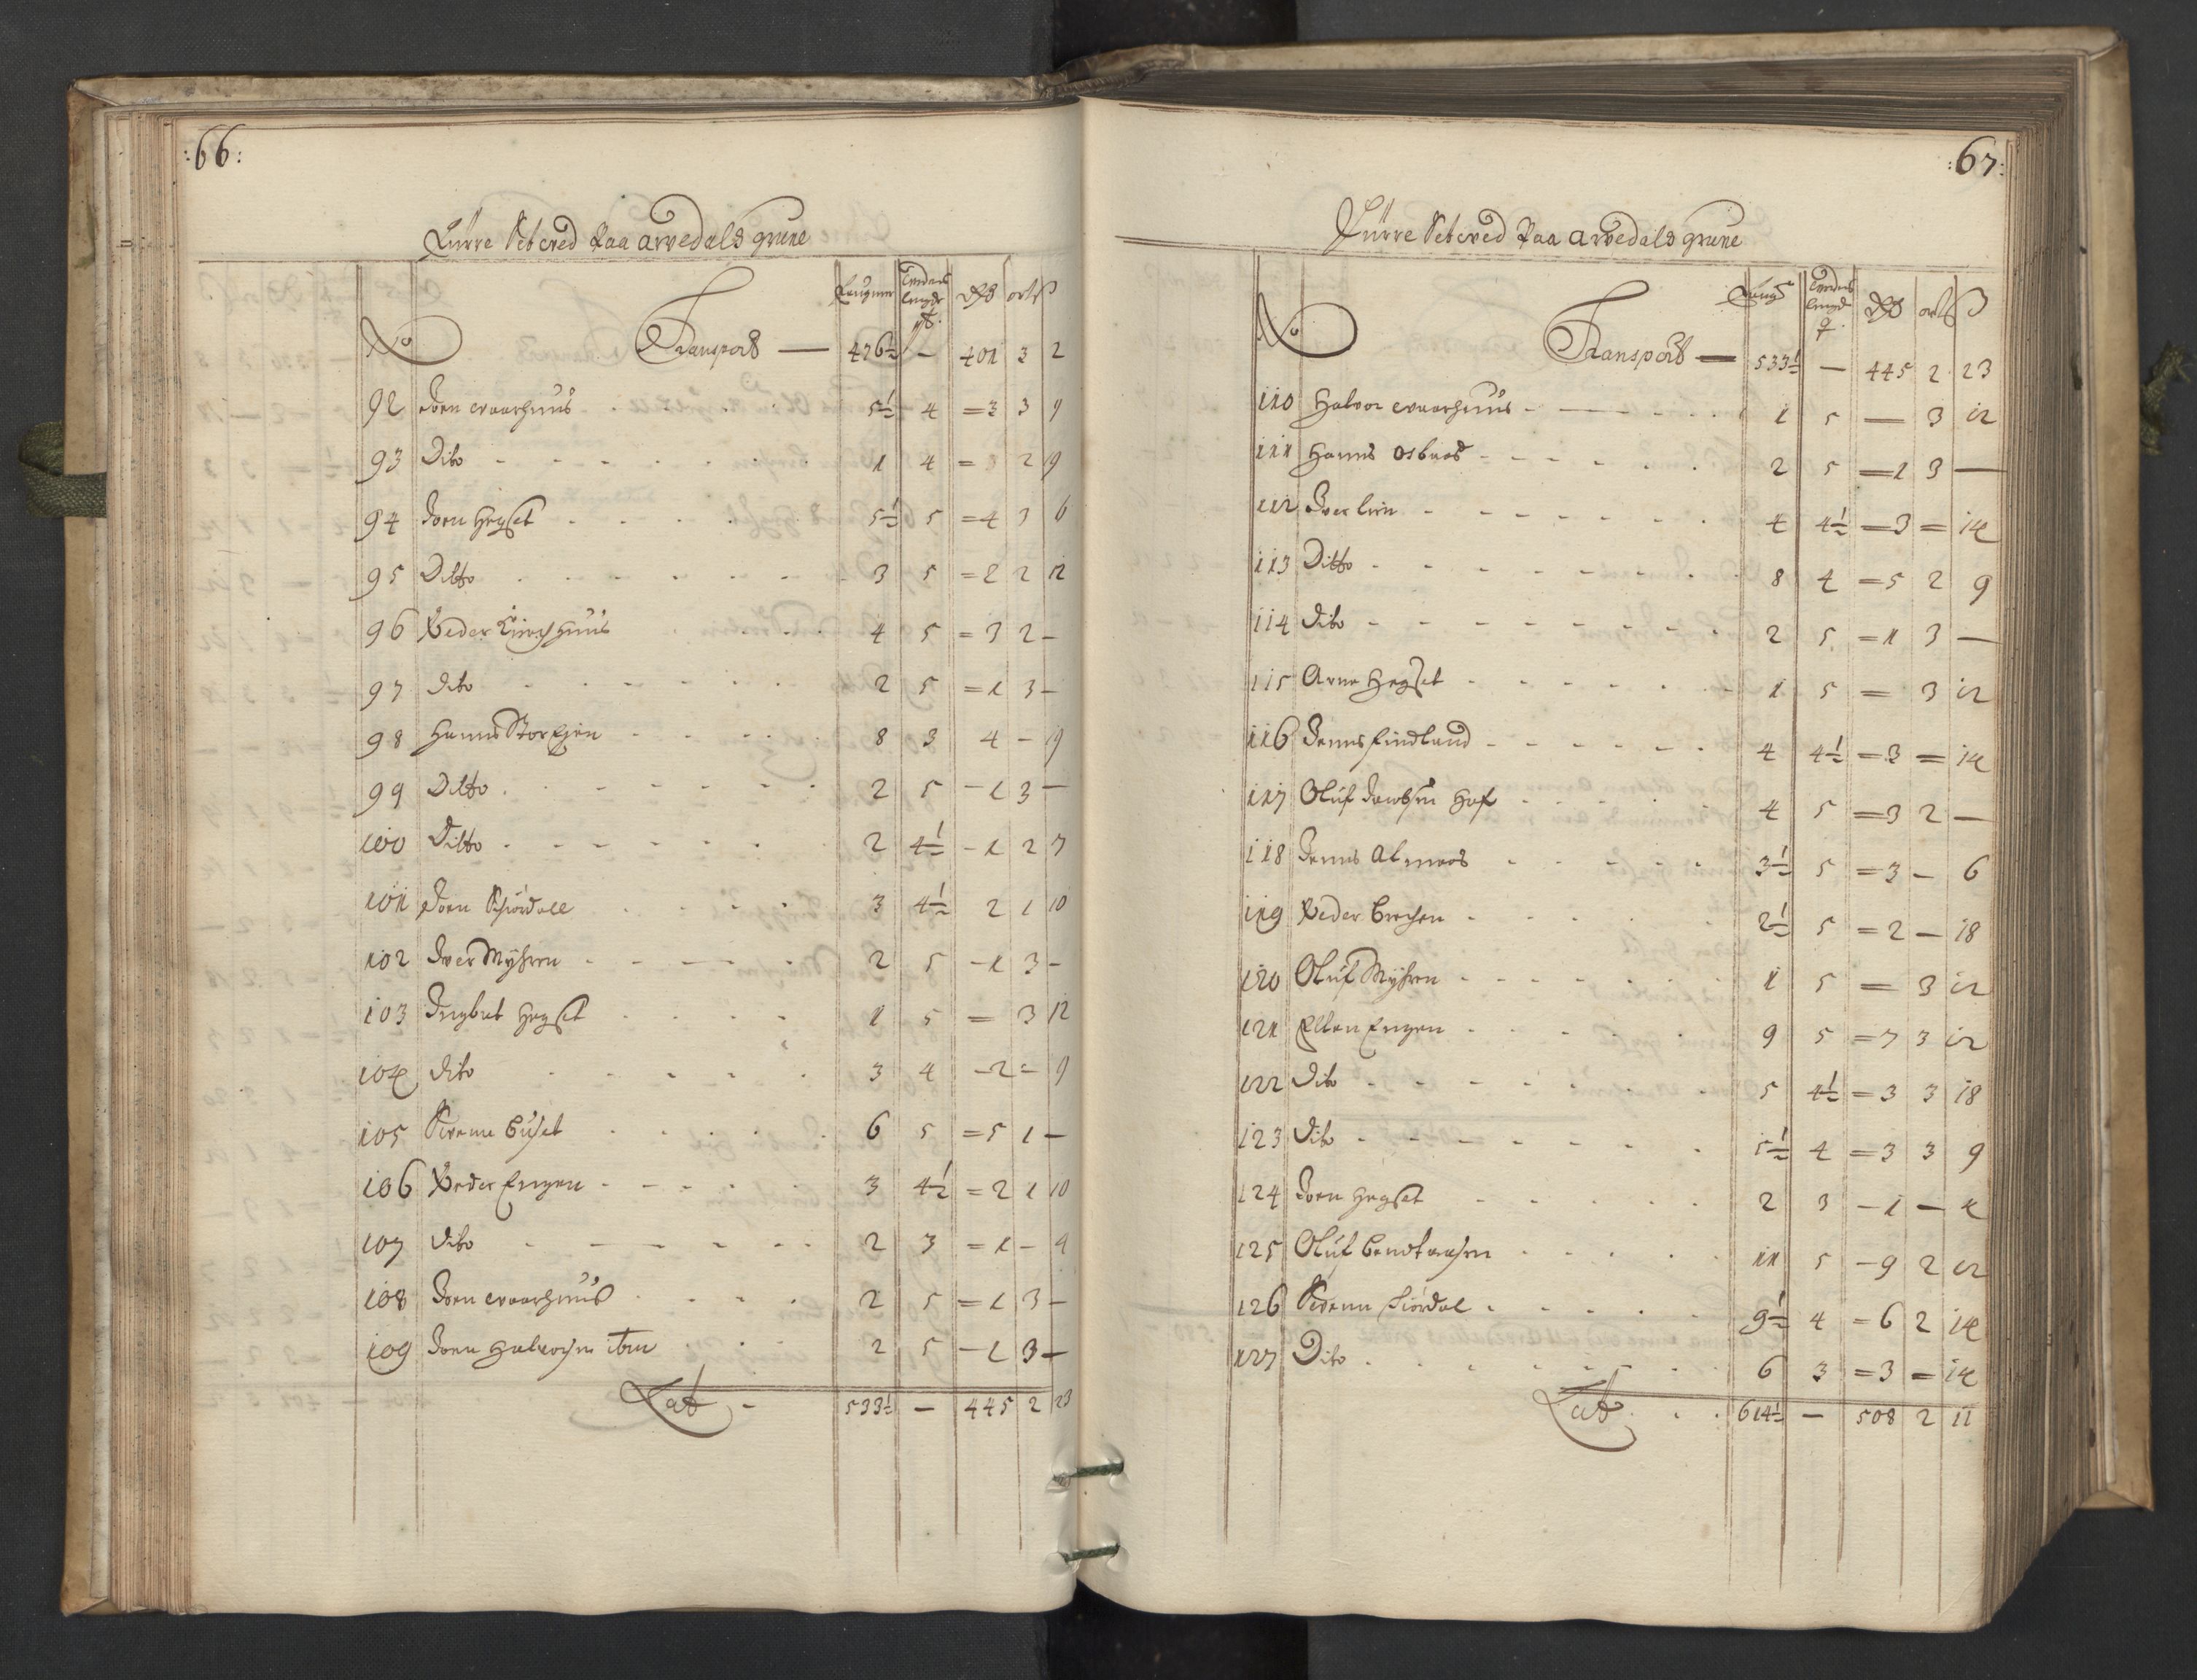 :66:
Fürre Setved Paa arvedals grune
No Transport — 476½ — 401 3 2
92 Joen Waarhuus 5½ 4 = 3 3 9
93 Dito 1 4 = 2 19
94 Joen Hegset 5½ 5 = 4 3 6
95 Ditto 3 5 = 2 2 12
96 Peder Kirchhuus 4 5 = 3 2 –
97 dito 2 5 = 1 3 –
98 Hanns Storeien 8 3 4 – 19
99 Ditto 2 5 – 1 3 –
100 Ditto 2 4½ – 1 2 7
101 Joen Schiördall 3 4½ 2 1 10
102 Iver Myhren 2 5 – 1 3 –
103 Ingbret Hegset 1 5 = 3 12
104 dito 3 4 – 2 = 9
105 Simen Buset 6 5 = 5 1 –
106 Peder Engen 3 4½ = 2 1 10
107 dito 2 3 = 1 – 4
108 Joen Waarhuus 2 5 = 1 3 –
109 Joen Halvorsen 2 5 – 1 3 –
Lat – 533½ – 445 2 23
:67:
Fürre Setved Paa arvedals grune
No Transport — 533½ — 445 2 23
110 Halvor Waarhuus 1 5 — 3 12
111 Hanns Osbaas 2 5 = 1 3 —
112 Iver Lien 4 4½ = 3 = 14
113 Ditto 8 4 = 5 2 9
114 dito 2 5 = 1 3 —
115 Arne Hegset 1 5 = 3 12
116 Jenns Findland 4 4½ = 3 = 14
117 Oluf Jacobsen Hof 4 5 = 3 2 —
118 Jenns Almaas 3½ 5 = 3 – 6
119 Peder Brechen 2½ 5 = 2 – 18
120 Oluf Myhren 1 5 = 3 12
121 Ellen Engen 9 5 = 7 3 12
122 Dito 5 4½ = 3 3 18
123 dito 5½ 4 = 3 3 9
124 Joen Hegset 2 3 – 1 – 4
125 Oluf Bendtzen 11 5 – 9 2 12
126 Simen Siördal 9½ 4 = 6 2 14
127 Dito 6 3 = 3 = 14
Lat 614½ – 508 2 11